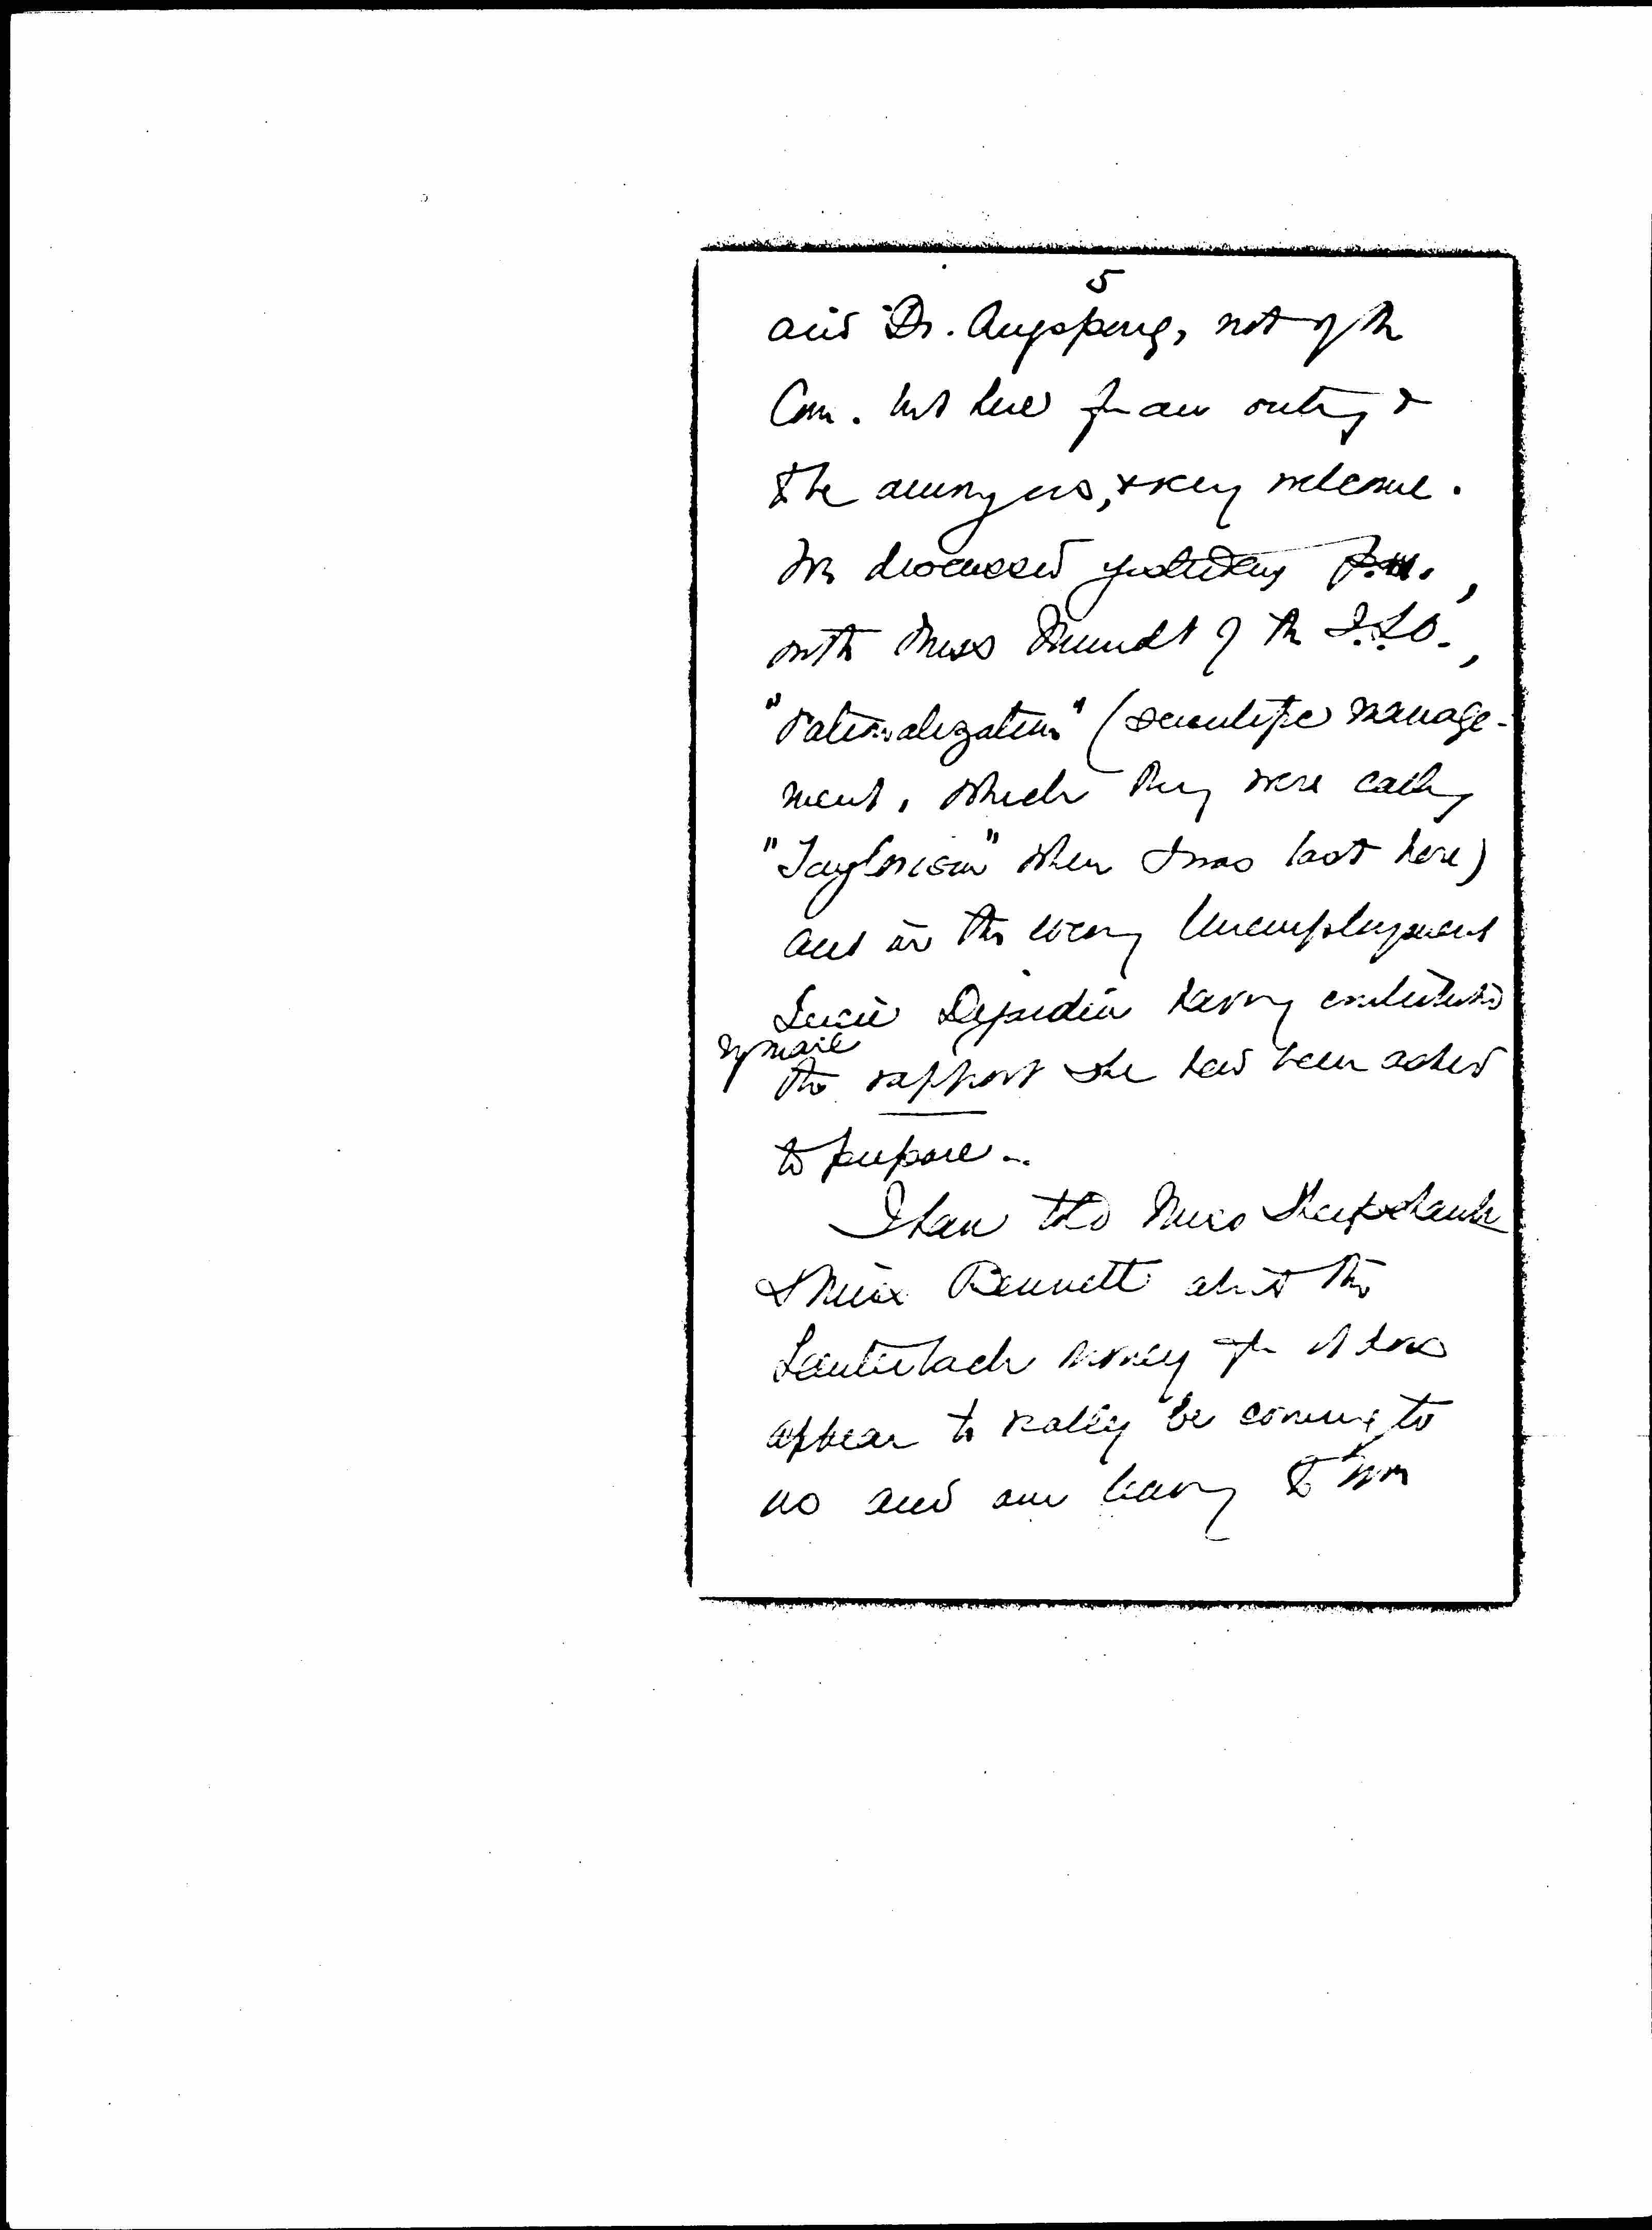 5
and Dr. Augspurg, not of the
Com. but here for an outing &
to be among us, & very welcome.
We discussed yesterday P.M.,
with Miss Mundt of the I.L.O.,
"rationalization" (scientific manage-
ment, which they were calling
"Taylorism" when I was last here)
and in the evening Unemployment
Lucie Dejardin having contributed
by mail
the rapport she had been asked
to prepare.
I have told Miss Sheepshanks
& Miss Bennett about the
Lauterbach money for it does
appear to really be coming to
us and our having to